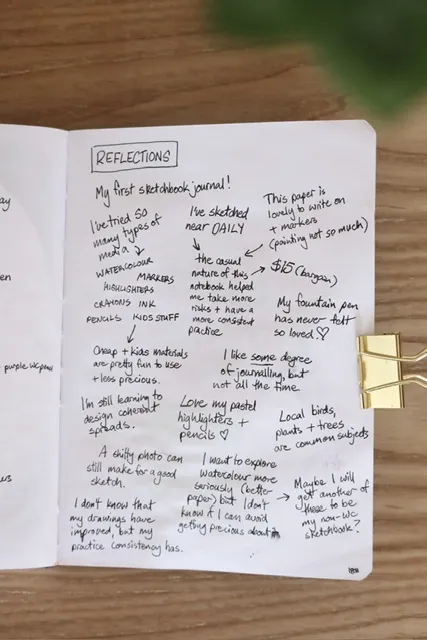 REFLECTIONS
My first sketchbook journal!
I've tried SO
many types of
media
WATERCOLOUR
MARKERS
HIGHLIGHTERS
CRAYONS INK
PENCILS KIDS STUFF
I've sketched
near DAILY
the casual
nature of this
notebook helped
me take more
risks + have a
more consistent
practice
This paper is
lovely to write on
+ markers
(painting not so much)
$15 (bargain)
My fountain pen
has never felt
so loved.♡
Cheap + kids materials
are pretty fun to use
+ less precious.
I like some degree
of journalling, but
not all the time.
I'm still learning to
design coherent
spreads.
Love my pastel
highlighters +
pencils ♡
Local birds,
plants + trees
are common subjects
A shitty photo can
still make for a good
sketch.
I want to explore
watercolour more
seriously (better
paper) but I don't
know if I can avoid
getting precious about
Maybe I will
get another of
these to be
my non-wc
sketchbook?
I don't know that
my drawings have
improved, but my
practice consistency has.
+ purple wc pencil